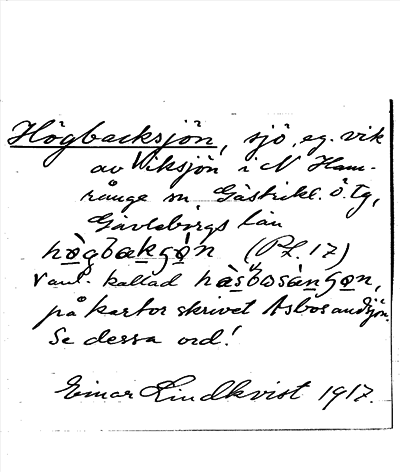 Högbacksjön, sjö, eg. vik
av Viksjön i N Ham-
rånge sn, Gästrikl. ö. tg,
Gävleborgs län
hògbakʂǫ̀n (Pl. 17)
vanl. kallad
på kartor skrivet Asbosandsjön.
Se dessa ord!
Einar Lindkvist 1917.